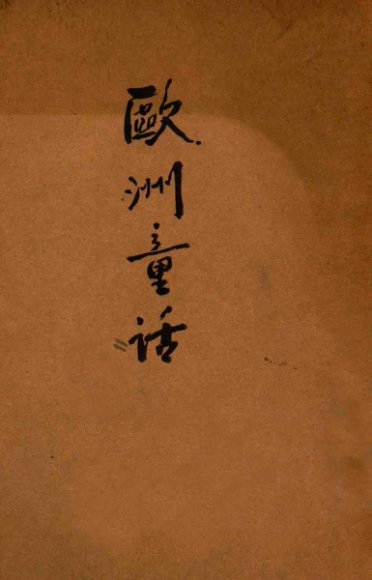 歐洲童话